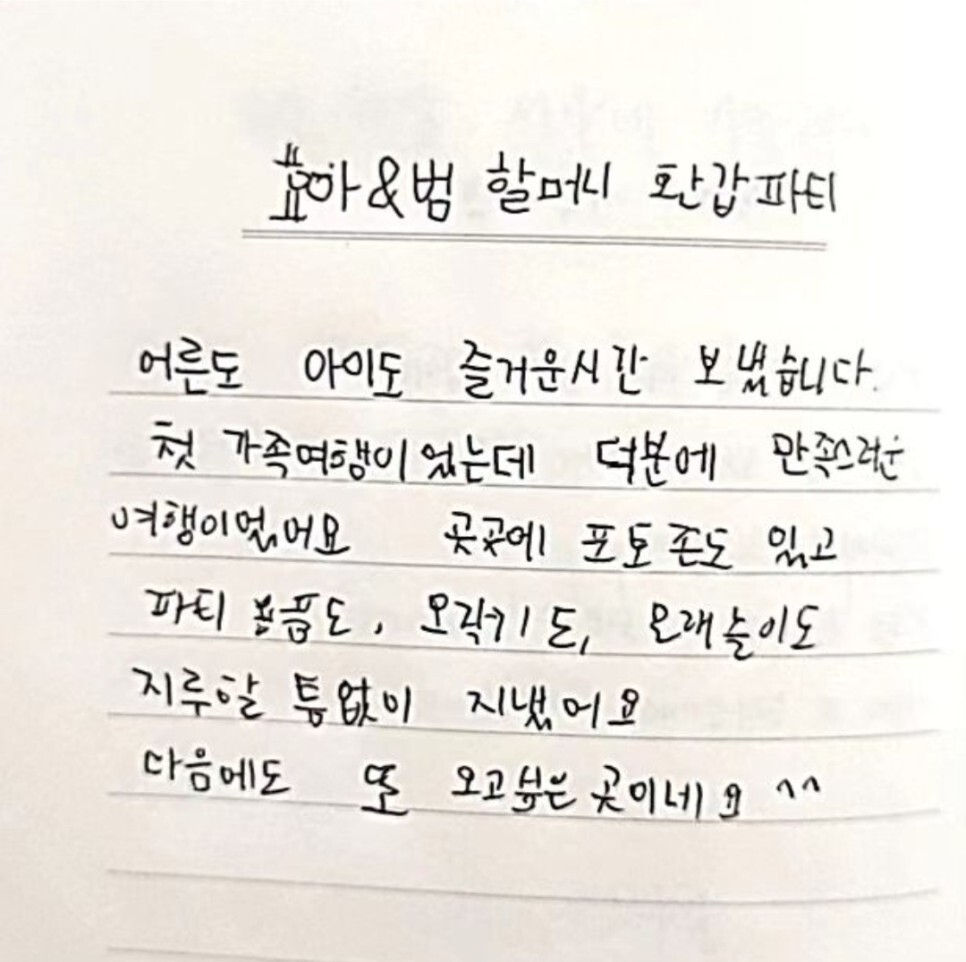 효아&범 할머니 환갑파티
어른도 아이도 즐거운시간 보냈습니다.
첫 가족여행이었는데 덕분에 만족스러운
여행이였어요 곳곳에 포토존도 있고
파티 용품도, 오락기도, 모래놀이도
지루할 틈없이 지냈어요
다음에도 또 오고싶은 곳이네요 ^^